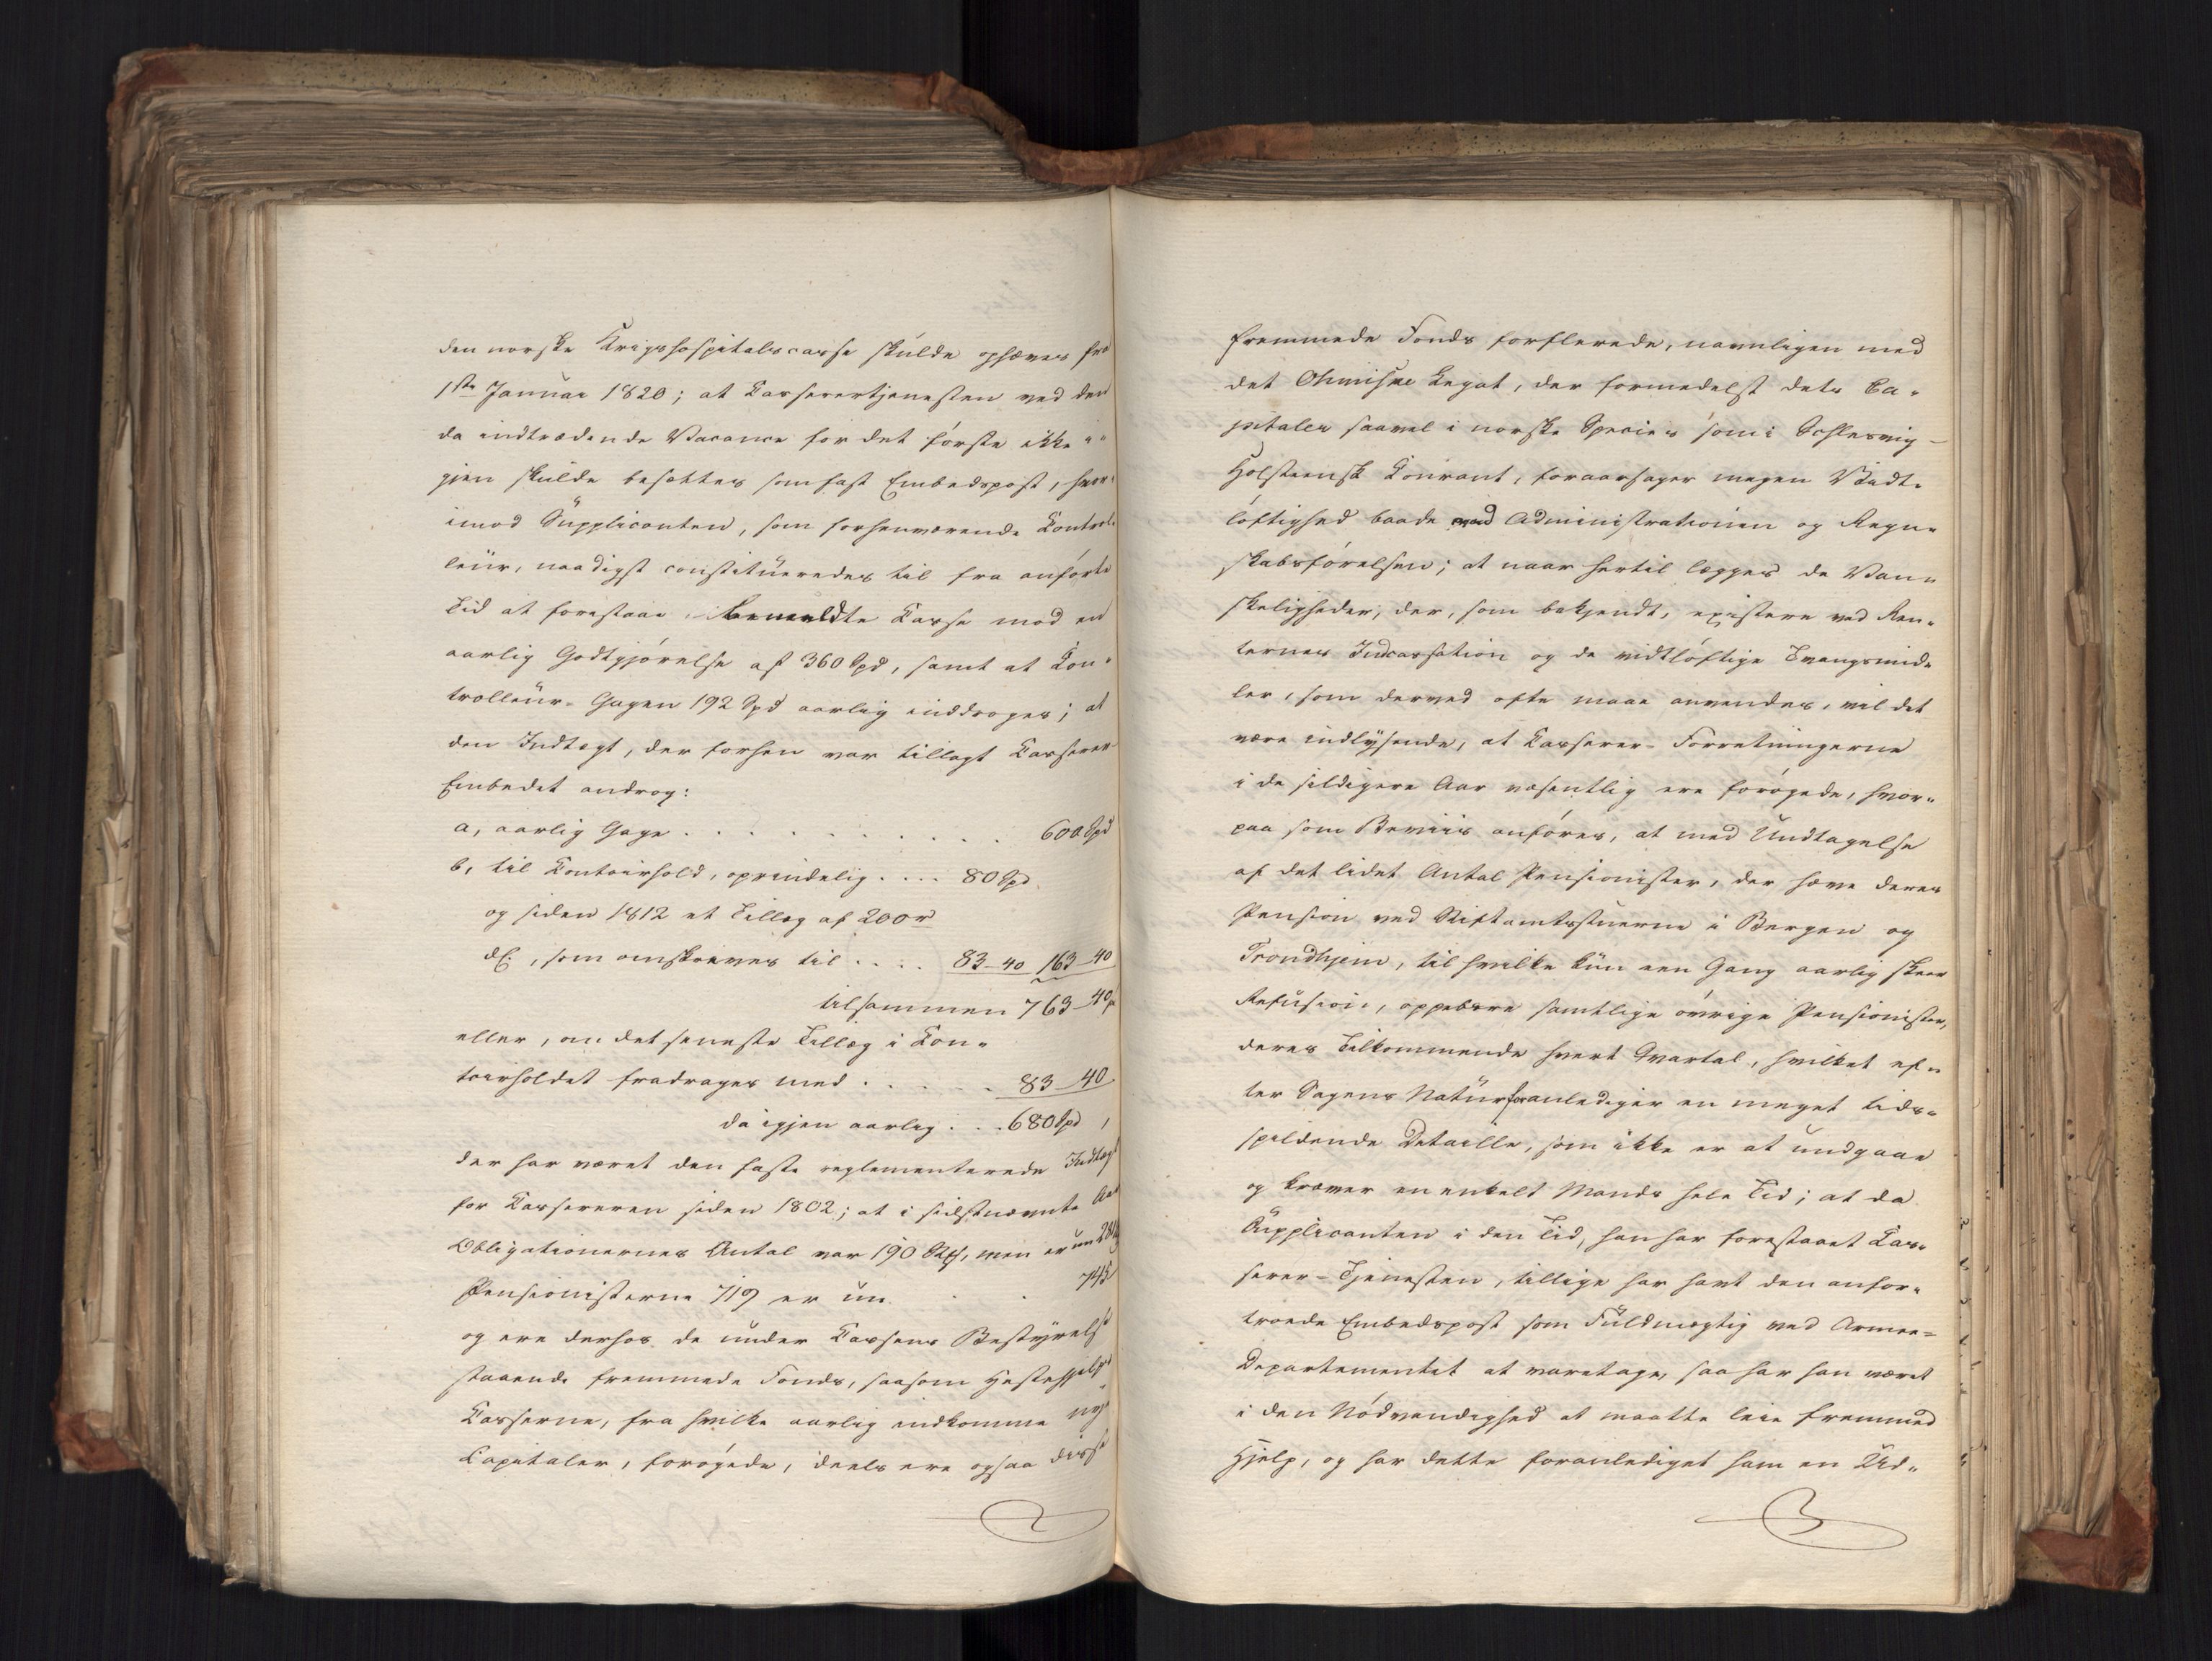 den norske Krigshospitalscasse skulde ophæves fra
1ste Januar 1820; at Cassererтjenesten ved den
da indtrædende Vacance for det første ikke i-
gjen skulde besættes som fast Embedspost, hvor-
imod Supplicanten, som forhenværende Control-
leur, naadigst constitueredes til fra anførte
Tid at forestaae bemeldte Casse mod en
aarlig Godtgjørelse af 360 Spd, samt at Con-
trolleur-Gagen 192 Spd aarlig inddroges; at
den Indtægt, der forhen var tillagt Casserer-
Embedet androg:
a, aarlig Gage . . . . . . . . . . 600 Spd
b, til Contoirhold, oprindelig . . . . 80 Spd
og siden 1812 et Tillæg af 200 r
d.C., som omskrives til . . . . 83-40 163-40
tilsammen 763-40
eller, om det seneste Tillæg i Con-
toirholdet fradrages med . . . . . 83-40
da igjen aarlig . . . 680 Spd,
der har været den faste reglementerede Indtægt
for Cassereren siden 1802; at i sidstnævnte Aar
Obligationernes Antal var 190 men er nu
Pensionisterne 719 er nu . . 745
og ere derhos de under Cassens Bestyrelse
staaende fremmede Fonds, saasom Hestehjelps
Casserne, fra hvilke aarlig indkomme nye
Capitaler, forøgede, deels ere ogsaa disse
fremmede Fonds forflerede, navnligen med
det Ohmiske Legat, der formedelst dets Ca-
pitaler saavel i norske Species som i Schlesvig-
Holsteensk Courant, foraarsager megen Vidt-
løftighed baade ved Administrationen og Regn-
skabsførelsen; at naar hertil lægges de Van-
skeligheder, der, som bekjendt, existere ved Ren-
ternes Indcassation og de vidtløftige Tvangsmid-
ler, som derved ofte maae anvendes, vil det
være indlysende, at Casserer-Forretningerne
i de sildigere Aar væsentlig ere forøgede, hvor-
paa som Beviis anføres, at med Undtagelse
af det lidet Antal Pensionister, der hæve deres
Pension ved Stiftamtsstuerne i Bergen og
Trondhjem, til hvilke kun een Gang aarlig skeer
Refusion, oppebære samtlige øvrige Pensionister,
deres Tilkommende hvert Qvartal, hvilket ef-
ter Sagens Natur foranlediger en meget tids-
spildende Detaille, som ikke er at undgaae
og kræver en enkelt Mands hele Tid; at da
Supplicanten i den Tid, han har forestaaet Cas-
serer-Tjenesten, tillige har havt den anfor-
troede Embedspost som Fuldmægtig ved Armee-
Departementet at varetage, saa har han været
i den Nødvendighed at maatte leie fremmed
Hjelp, og har dette foranlediget ham en Ud-